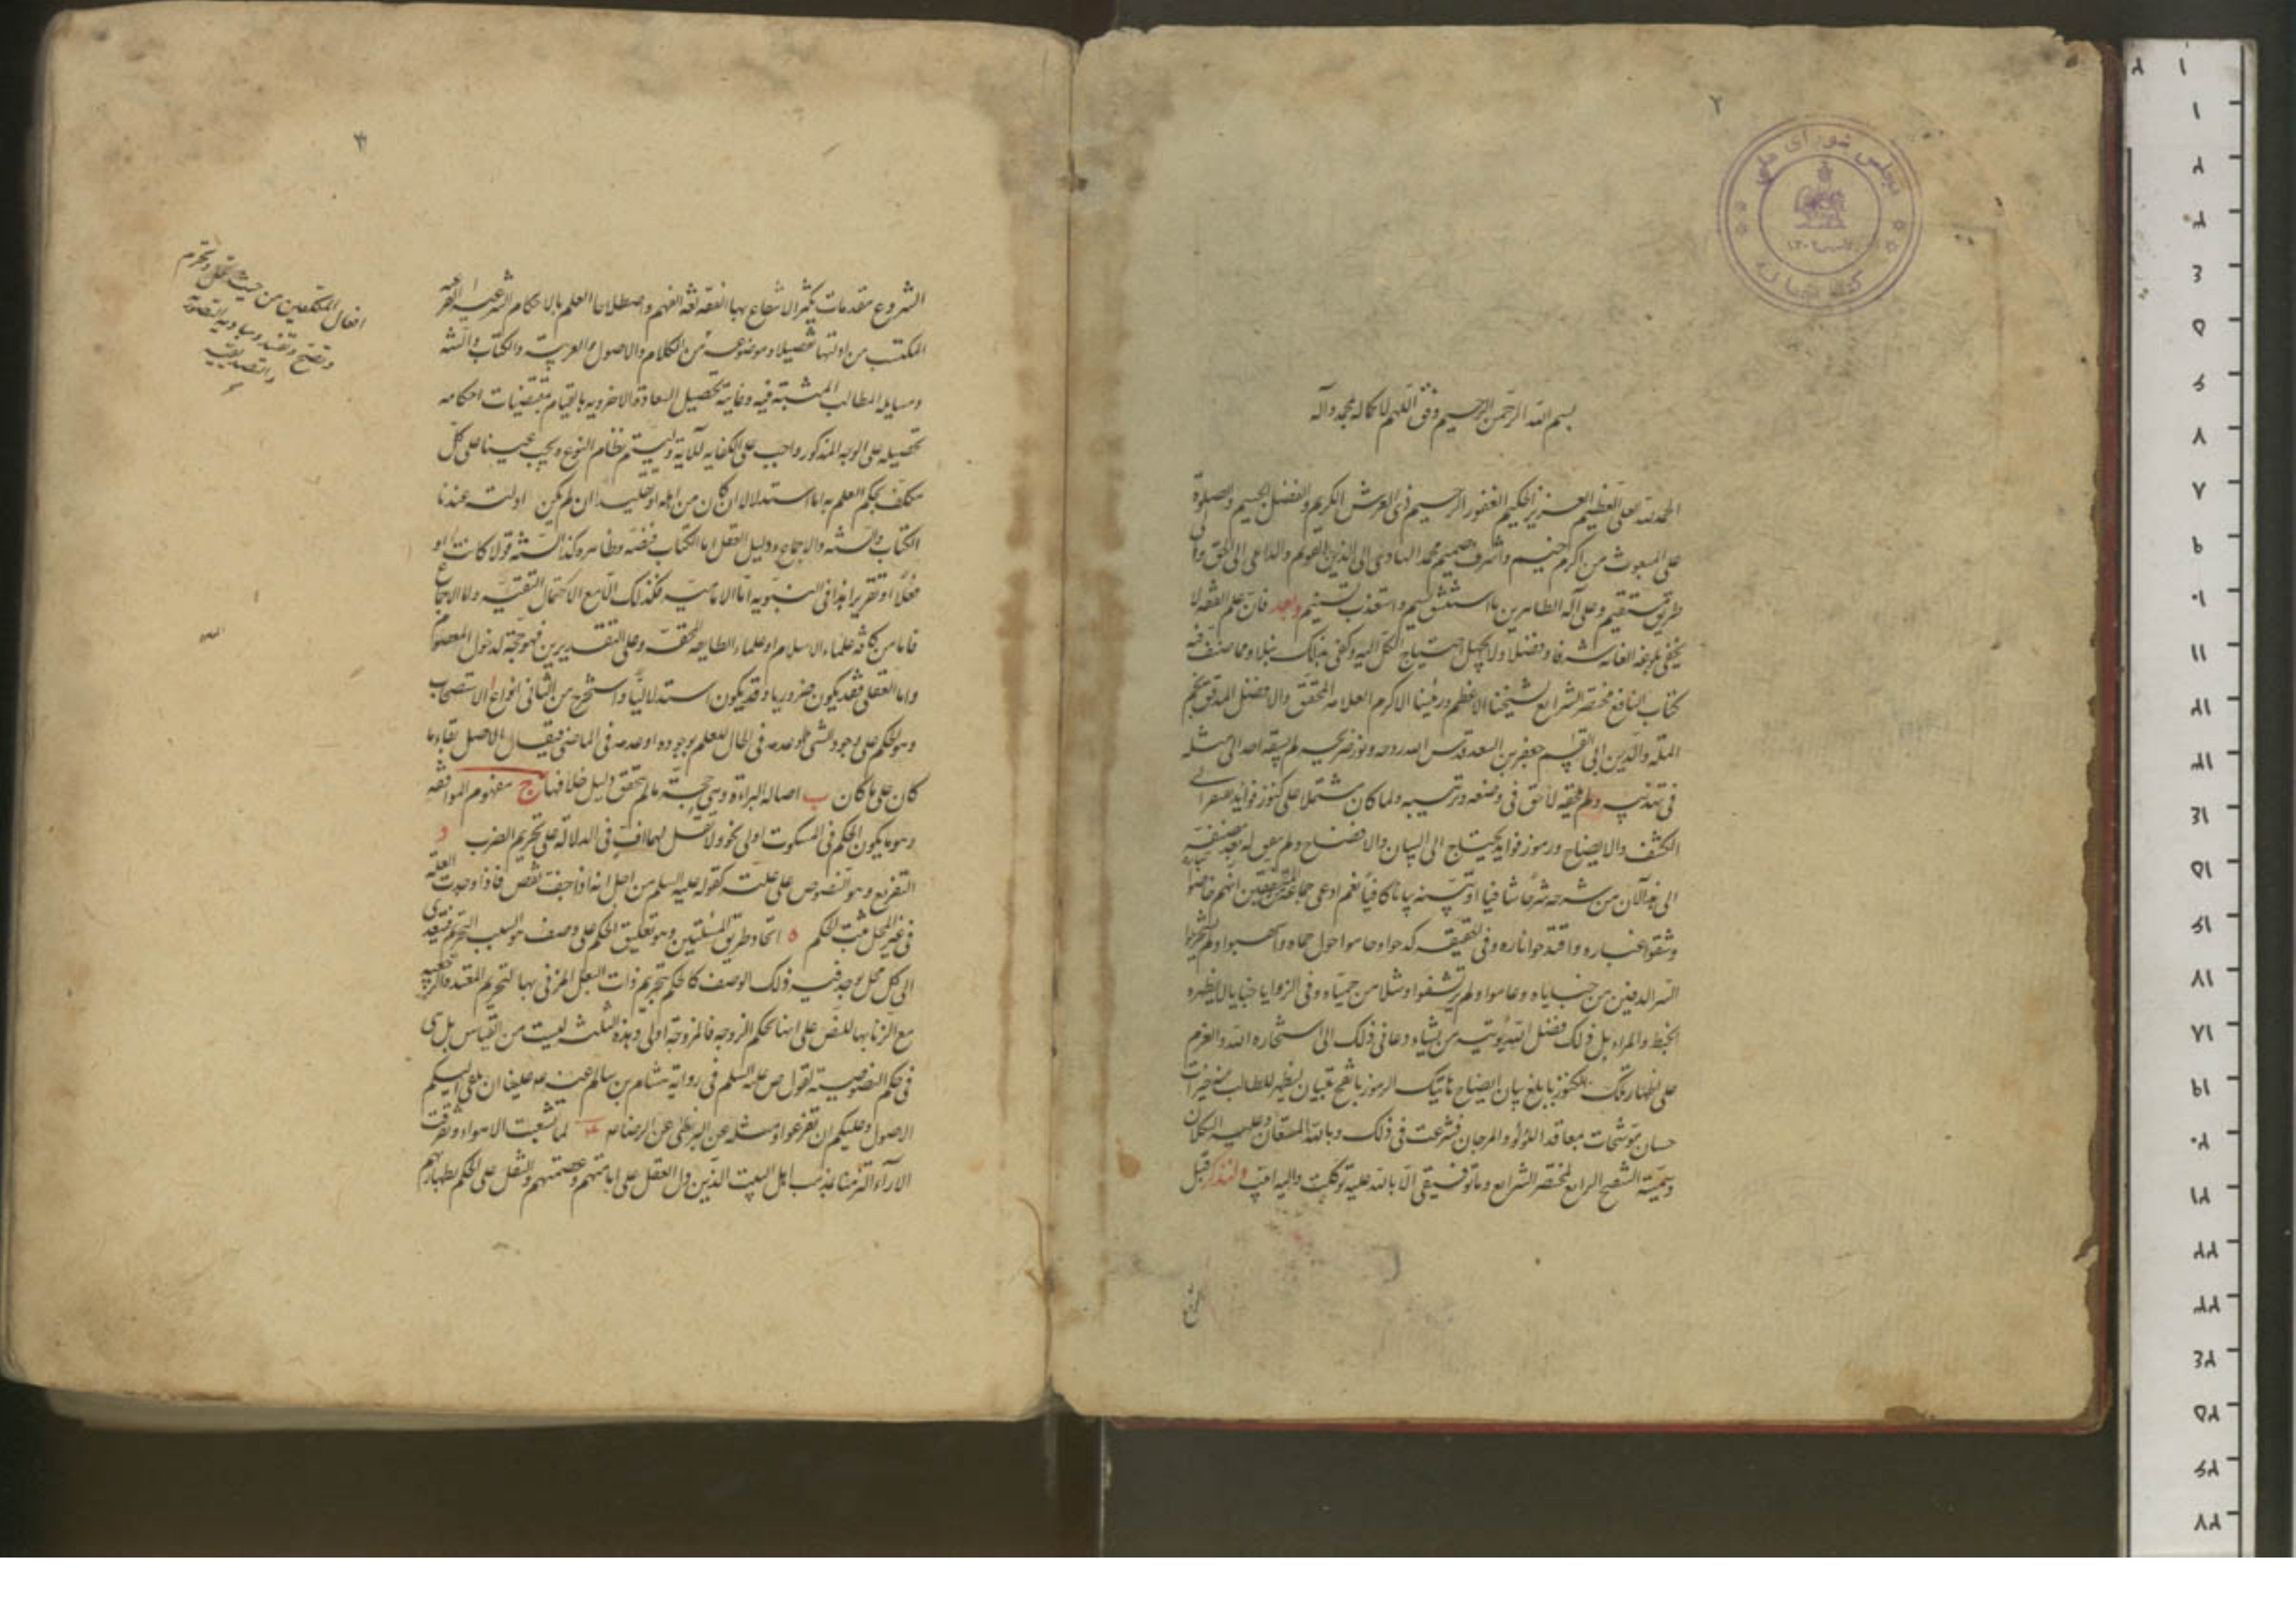 ٢
مجلس شورای ملی
١٣٠٢
کتابخانه
بسم الله الرحمن الرحيم وفق اللهم لاكماله بمحمد وآله
الحمد لله العلى العظيم العزيز الحكيم الغفور الرحيم ذى العرش الكريم والفضل الجسيم والصلوة
على المبعوث من اكرم خيم واشرف صميم محمد الهادى الى الدين القويم والداعى الى الحق والى
طريق مستقيم وعلى آله الطاهرين ما استنشق نسيم واستعذب تسنيم وبعد فان علم الفقه لا
يخفى بلوغه الغاية شرفا وفضلا ولا يجهل احتياج الكل اليه وكفى بذلك نبلا ومما صنف فيه
كتاب النافع مختصر الشرايع لشيخنا الاعظم ورئيسنا الاكرم العلامة المحقق والافضل المدقق نجم
الملة والدين ابى القسم جعفر بن السعيد قدس الله روحه ونور ضريحه لم يسبقه احد الى مثله
فى تهذيبه ولم يلحقه لاحق فى وضعه وترتيبه ولما كان مشتملا على كنوز فوائد يفتقر الى
الكشف والايضاح ورموز فوايد يحتاج الى البيان والافصاح ولم يتفق له بعد مصنفه
الى هذا الآن من شرحه شرحا شافيا او بينه بيانا كافيا نعم ادعى جماعة من المتفقهين انهم خاضوا
وشقوا غباره واقتدحوا ناره وفى الحقيقة كدحوا وحاموا حول حماه واسهبوا ولم يستخرجوا
السر الدفين من خباياه وعاموا ولم يرتشفوا وشلا من حمياه وفى الزوايا خبايا لا يظهره
الخبط والمراء بل ذلك فضل الله يؤتيه من يشاء ودعانى ذلك الى استخارة الله والعزم
على اظهار تلك الكنوز بابلغ بيان وايضاح هاتيك الرموز بافصح تبيان ليظهر للطالب خيرات
حسان موشحات بمعاقد اللؤلؤ والمرجان فشرعت فى ذلك وبالله المستعان وعليه التكلان
وسميته التنقيح الرايع لمختصر الشرايع وما توفيقى الا بالله عليه توكلت واليه انيب ولنذكر قبل
الشروع
٣
الشروع مقدمات يكثر الانتفاع بها الفقه لغة الفهم واصطلاحا العلم بالاحكام الشرعية الفرعية
المكتسب من ادلتها تفصيلا وموضوعه من الكلام والاصول والعربية والكتاب والسنة
ومسايله المطالب المثبتة فيه وغايته تحصيل السعادة الاخروية بالقيام بمقتضيات احكامه
تحصيله على الوجه المذكور واجب على الكفاية للآية وليستتم نظام النوع ويجب عينا على كل
مكلف بحكم العلم به اما استدلالا ان كان من اهله او تقليدا ان لم يكن ادلته عندنا
الكتاب والسنة والاجماع ودليل العقل اما الكتاب فنصه وظاهره وكذا السنة قولا كانت او
فعلا او تقريرا هذا فى النبوية اما الامامية فكذلك الا مع الاحتمال التقية واما الاجماع
فاما من كافة علماء الاسلام او علماء الطايفة المحقة وعلى التقديرين فهو حجة لدخول المعصوم
واما العقلى فقد يكون ضروريا وقد يكون استدلاليا واستخرج من الثانى انواع ا الاستصحاب
وهو الحكم على وجود الشى او عدمه فى الحال للعلم بوجوده او عدمه فى الماضى فيقال الاصل بقاء ما
كان على ما كان ب اصالة البراءة وهى حجة ما لم يتحقق دليل خلافها ج مفهوم الموافقة
وهو ما يكون الحكم فى المسكوت اولى نحو ولا تقل لهما اف فى الدلالة على تحريم الضرب د
التفريع وهو المنصوص على علته كقوله عليه السلم من اجل انه اذا جف نقص فاذا وجدت العلة
فى غير المحل ثبت الحكم ه اتحاد طريق المسئلتين وهو تعليق الحكم على وصف هو السبب التحريم فيتعدى
الى كل محل يوجد فيه ذلك الوصف كالحكم بتحريم ذات البعل المزنى بها لتحريم المعتدة الرجعية
مع الزنا بها للنص على انها بحكم الزوجة فالمزوجة اولى وهذه الثلثة ليست من القياس بل هى
فى حكم النصوصية لقول ص عليه السلم فى رواية هشام بن سالم عنه علينا ان نلقى اليكم
الاصول وعليكم ان تفرعوا ومثله عن البزنطى عن الرضا ع لما تشعبت الاهواء وتفرقت
الآراء التزمنا بمذهب اهل البيت الذين دل العقل على امامتهم وعصمتهم والنقل على الحكم بطهارتهم
افعال المكلفين من حيث تحل وتحرم
وتصح وتفسد ومباديه التصورية
والتصديقية